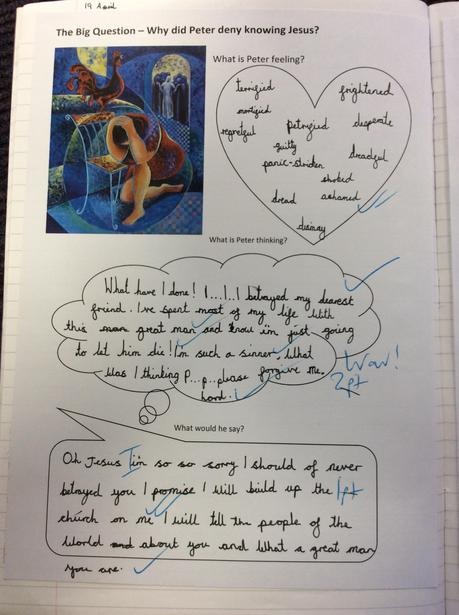 19 April
The Big Question – Why did Peter deny knowing Jesus?
What is Peter feeling?
terrified frightened
mortified
regretful petrified desperate
guilty
panic-striken dreadful
shoked
dread ashamed
dismay
What is Peter thinking?
What have I done! I...I...I betrayed my dearest
friend. I've spent most of my life with
this great man and know i'm just going
to let him die! I'm such a sinner. What
was I thinking P...p...please forgive me.
lord.
Wow!
2pt
What would he say?
Oh Jesus I'm so so sorry I should of never
betrayed you I promise I will build up the 1pt
church on me I will tell the people of the
world about you and what a great man
you are.